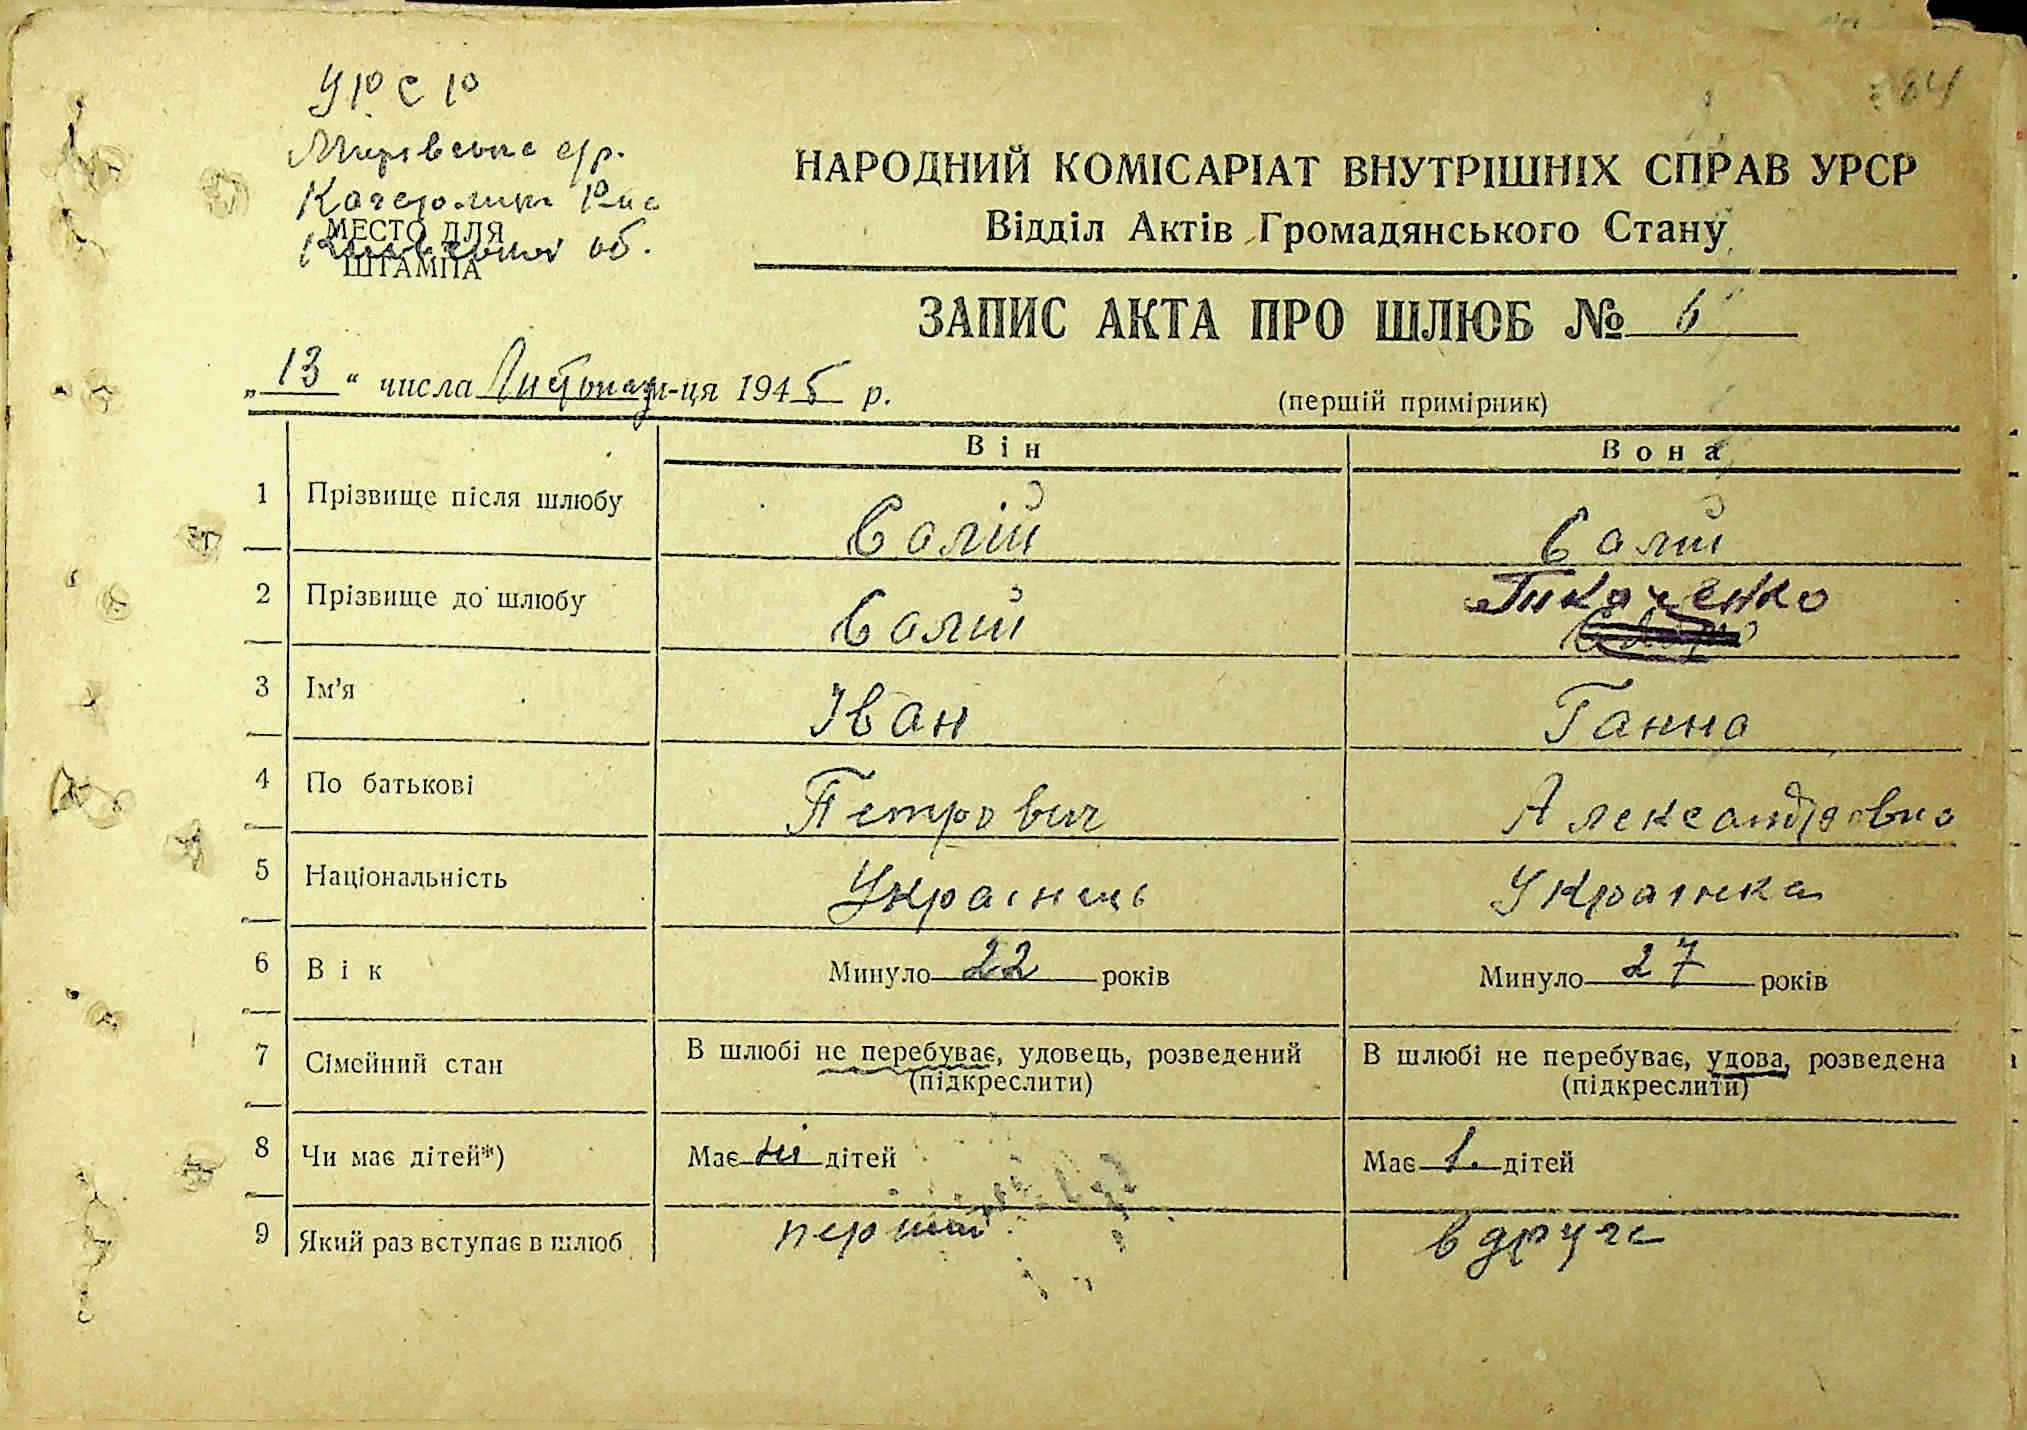 УРСР
Мирівська с/р.
Кагарлицьк. р-на
Київської об.
МЕСТО ДЛЯ
ШТАМПА
НАРОДНИЙ КОМІСАРІАТ ВНУТРІШНІХ СПРАВ УРСР
Відділ Актів Громадянського Стану
ЗАПИС АКТА ПРО ШЛЮБ № 6
„13“ числа Листопад м-ця 1945 р.
(першій примірник)
Він Вона
1 Прізвище після шлюбу Салій Салій
2 Прізвище до шлюбу Салій Ткаченко
3 Ім'я Іван Ганна
4 По батькові Петрович Александровна
5 Національність Українець Українка
6 Вік Минуло 22 років Минуло 27 років
7 Сімейний стан В шлюбі не перебуває, удовець, розведений В шлюбі не перебуває, удова, розведена
(підкреслити) (підкреслити)
8 Чи має дітей*) Має ні дітей Має 1. дітей
9 Який раз вступає в шлюб перший вдруге